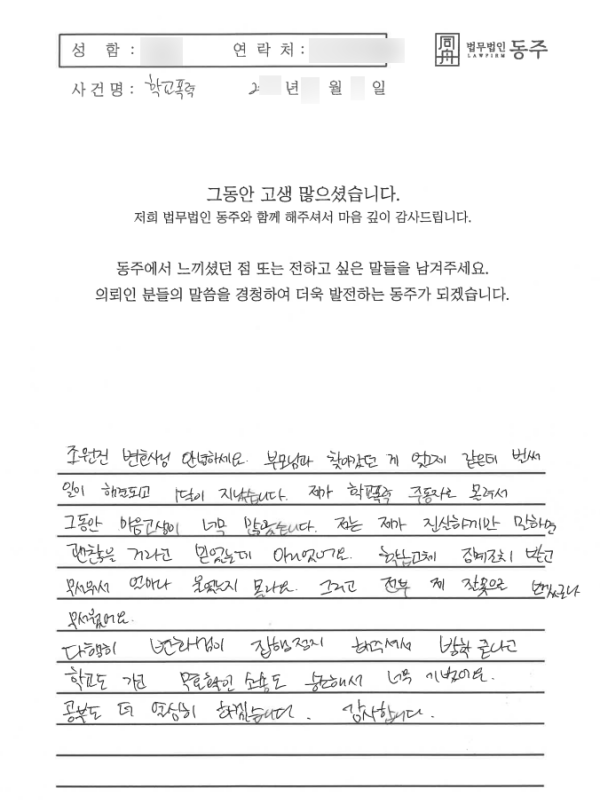 성 함 : 연 락 처 :
同舟 법무법인 동주
LAWFIRM
사 건 명 : 학교폭력 2 년 월 일
그동안 고생 많으셨습니다.
저희 법무법인 동주와 함께 해주셔서 마음 깊이 감사드립니다.
동주에서 느끼셨던 점 또는 전하고 싶은 말들을 남겨주세요.
의뢰인 분들의 말씀을 경청하여 더욱 발전하는 동주가 되겠습니다.
조원진 변호사님 안녕하세요. 부모님과 찾아갔던 게 엊그제 같은데 벌써
일이 해결되고 1달이 지났습니다. 제가 학교폭력 주동자로 몰려서
그동안 마음고생이 너무 많았습니다. 저는 제가 진실하게만 말하면
괜찮을 거라고 믿었는데 아니었어요. 학급교체 징계조치 받고
무서워서 얼마나 울었는지 몰라요. 그리고 전부 제 잘못으로
무서웠어요.
다행히 변호사님이 집행정지 해주셔서 방학 끝나고
학교도 가고 무효확인 소송도 승소해서 너무 기뻤어요.
공부도 더 열심히 하겠습니다. 감사합니다.